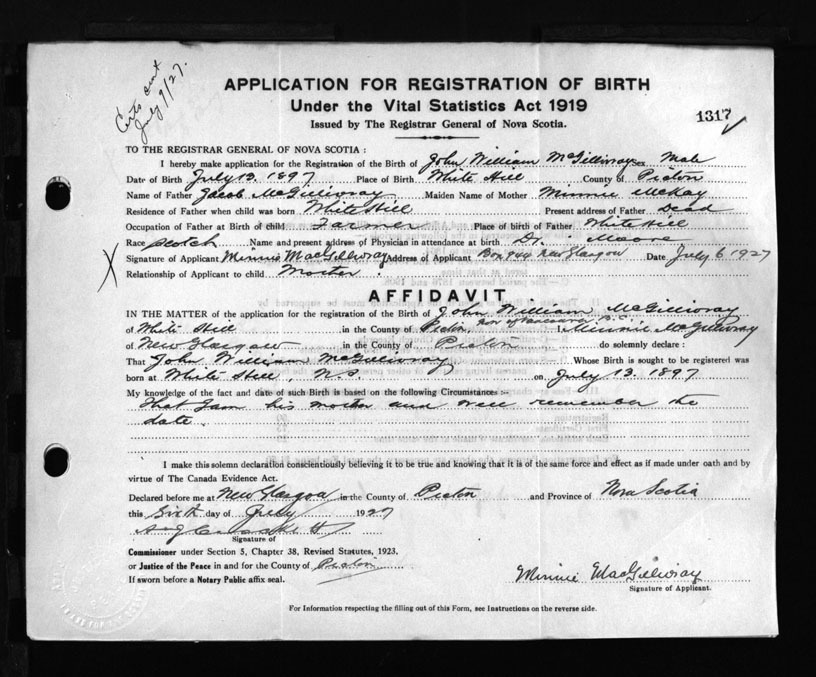 Certs sent
July 9/27.
APPLICATION FOR REGISTRATION OF BIRTH
Under the Vital Statistics Act 1919
1317
Issued by The Registrar General of Nova Scotia.
TO THE REGISTRAR GENERAL OF NOVA SCOTIA :
I hereby make application for the Registration of the Birth of John William McGillivray Male
Date of Birth July 13. 1897 Place of Birth White Hill County of Picton
Name of Father Jacob McGillivray Maiden Name of Mother Minnie McKay
Residence of Father when child was born White Hill Present address of Father Dead
Occupation of Father at Birth of child Farmer Place of birth of Father White Hill
Race Scotch Name and present address of Physician in attendance at birth Dr. Moore
Signature of Applicant Minnie MacGillivray Address of Applicant Box 944 New Glasgow Date July 6 1927
Relationship of Applicant to child Moster .
AFFIDAVIT
IN THE MATTER of the application for the registration of the Birth of John William McGillivray
of White Hill in the County of Picton, I Minnie McGillivray
of New Glasgow in the County of Picton do solemnly declare :
That John William McGillivray Whose Birth is sought to be registered was
born at White Hill, N.S. on July 13. 1897
My knowledge of the fact and date of such Birth is based on the following Circumstances:-
That I am his moster and well remember the
date.
I make this solemn declaration conscientiously believing it to be true and knowing that it is of the same force and effect as if made under oath and by
virtue of The Canada Evidence Act.
Declared before me at New Glasgow in the County of Picton and Province of Nova Scotia
this Sixth day of July 1927
Signature of
Commissioner under Section 5, Chapter 38, Revised Statutes, 1923.
or Justice of the Peace in and for the County of Picton
If sworn before a Notary Public affix seal.
Minnie MacGillivray
Signature of Applicant.
For Information respecting the filling out of this Form, see Instructions on the reverse side.